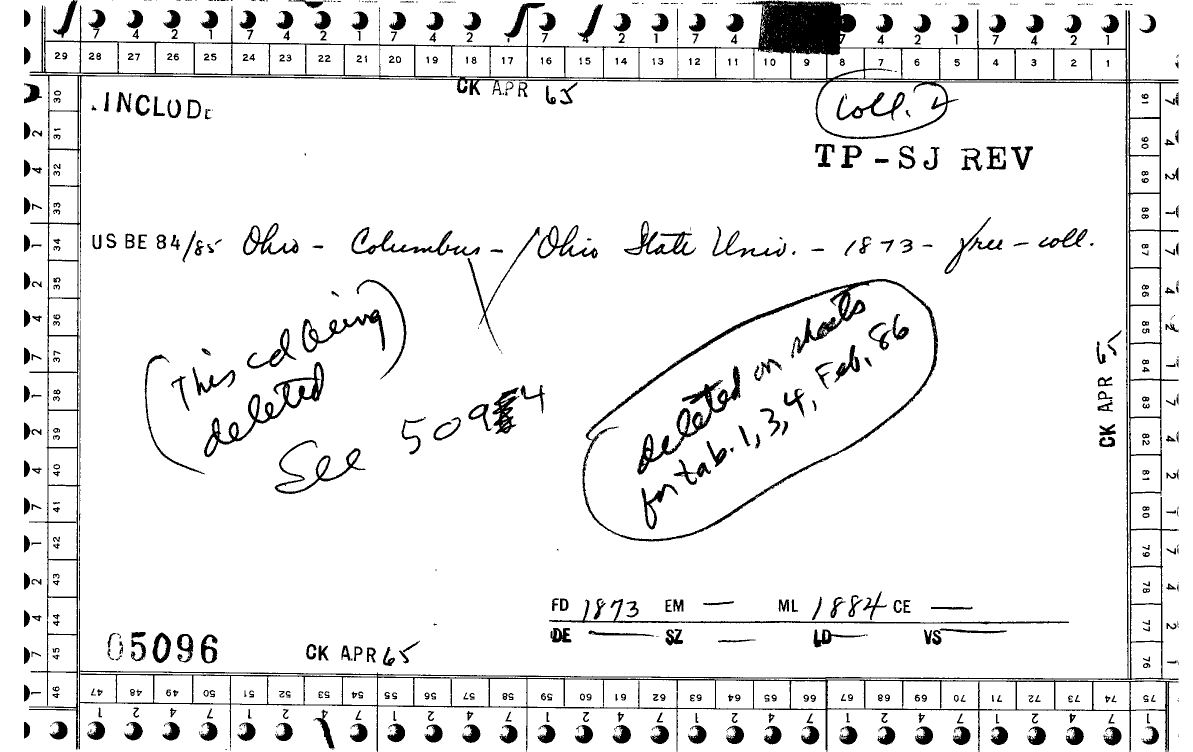 7 4 2 1 7 4 2 1 7 4 2 1 7 4 2 1 7 4 2 1 7 4 2 1
29 28 27 26 25 24 23 22 21 20 19 18 17 16 15 14 13 12 11 10 9 8 7 6 5 4 3 2 1
CK APR 65
.INCLUDE
coll.
TP-SJ REV
US BE 84/85 Ohio - Columbus - / Ohio State Univ. - 1873 - free - coll.
(This cd being
deleted)
See 5094
deleted on sheets
for tab. 1, 3, 4, Feb, 86
CK APR 65
FD 1873 EM — ML 1884 CE —
DE — SZ — LD — VS —
05096
CK APR 65
30 31 32 33 34 35 36 37 38 39 40 41 42 43 44 45 46
91 90 89 88 87 86 85 84 83 82 81 80 79 78 77 76 75
47 48 49 50 51 52 53 54 55 56 57 58 59 60 61 62 63 64 65 66 67 68 69 70 71 72 73 74 75